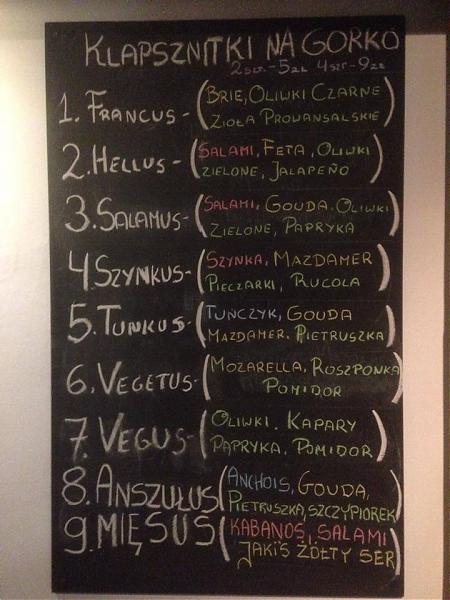 KLAPSZNITKI NA GORKO
2szt.-5zł 4szt-9zł
1. FRANCUS - (BRIE, OLIWKI CZARNE
ZIOŁA PROWANSALSKIE)
2. HELLUS - (SALAMI, FETA, OLIWKI
ZIELONE, JALAPEÑO)
3. SALAMUS - (SALAMI, GOUDA, OLIWKI
ZIELONE, PAPRYKA)
4. SZYNKUS - (SZYNKA, MAZDAMER
PIECZARKI, RUCOLA)
5. TUNKUS - (TUŃCZYK, GOUDA
MAZDAMER, PIETRUSZKA)
6. VEGETUS - (MOZARELLA, ROSZPONKA
POMIDOR)
7. VEGUS - (OLIWKI, KAPARY
PAPRYKA, POMIDOR)
8. ANSZUŁUS (ANCHOIS, GOUDA,
PIETRUSZKA, SZCZYPIOREK)
9. MIĘSUS (KABANOS, SALAMI
JAKIŚ ŻÓŁTY SER)